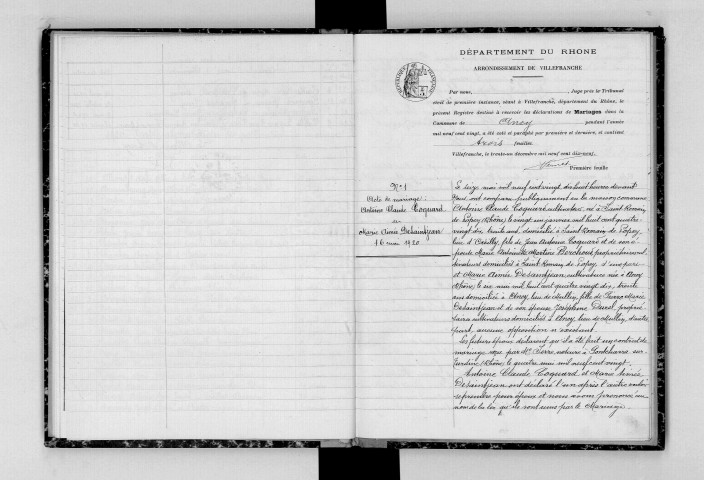 DÉPARTEMENT DU RHONE
ARRONDISSEMENT DE VILLEFRANCHE
Par nous, Juge près le Tribunal
civil de première instance, séant à Villefranche, département du Rhône, le
présent Registre destiné à recevoir les déclarations de Mariages dans la
Commune de pendant l'année
mil neuf cent vingt, a été coté et paraphé par première et dernière, et contient
feuilles.
Villefranche, le trente-un décembre mil neuf cent dix-neuf.
Première feuille
N° 1
Acte de mariage :
Antoine Claude Coquard
et
Marie Aimée Desaintjean
16 mai 1920
Le seize mai mil neuf cent vingt dix huit heures devant
Nous ont comparu publiquement en la maison commune
Antoine Claude Coquard, cultivateur, né à Saint Romain
de Popey (Rhône) le vingt un janvier mil huit cent quatre
vingt dix domicilié à Saint Romain de Popey,
fils de Jean Antoine Coquard et de son é
pouse Marie Antoinette propriétaires
cultivateurs domiciliés à Saint Romain de Popey, d'une part
et Marie Aimée Desaintjean, cultivatrice née à
Rhône, le six mai mil huit cent quatre vingt dix, trente
ans domiciliée à lieu de fille de Pierre Marie
Desaintjean et de son épouse Joséphine proprié
taires cultivateurs domiciliés à lieu de d'autre
part, aucune opposition n'existant.
Les futurs époux déclarent qu'il a été fait un contrat de
mariage reçu par Me notaire à Pontcharra sur
Turdine (Rhône) le quatre mai mil neuf cent vingt.
Antoine Claude Coquard et Marie Aimée
Desaintjean ont déclaré l'un après l'autre vouloir
se prendre pour époux et nous avons prononcé au
nom de la loi qu'ils sont unis par le Mariage.